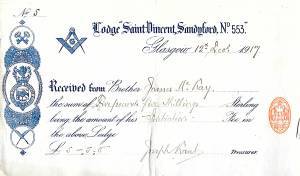 No 5
Lodge "Saint Vincent, Sandyford, No 553."
Glasgow 12th Dec 1917
Received from Brother James Mc Kay
the sum of Five pounds five Shillings Sterling
being the amount of his Fee in
the above Lodge
£ 5-5-
Joseph Treasurer